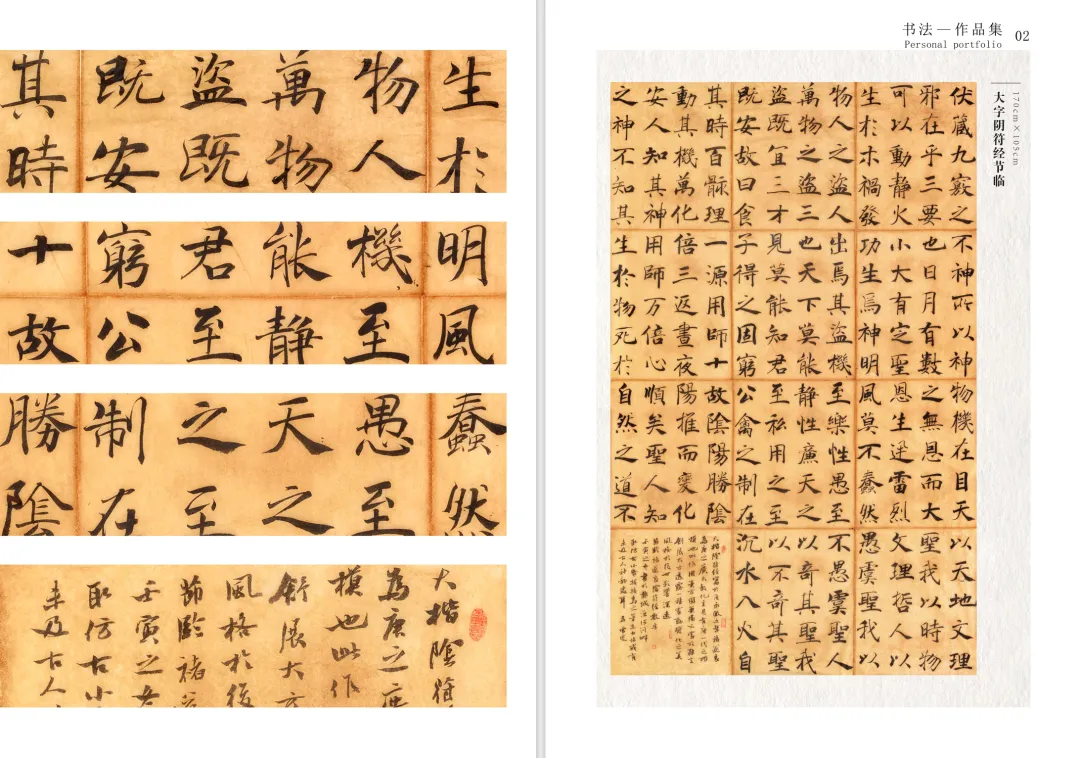 生於
物人
萬物
盜既
既安
其時
明風
機至
能靜
君至
窮公
十故
蠢然
愚至
天之
之至
制在
勝陰
大楷陰符
為唐之
模也此作
舒展大方
風格於後
節臨褚
壬寅之
取仿古小
未及古人
书法—作品集
Personal portfolio
02
170cm×105cm
大字阴符经节临
伏藏九竅之
邪在乎三要
可以動靜火
生於木禍發
物人之盜人
萬物之盜三
盜既宜三才
既安故曰食
其時百骸理
動其機萬化
安人知其神
之神不知其
不神所以神
也日月有數
小大有定聖
功生焉神明
出焉其盜機
也天下莫能
見莫能知君
子得之固窮
一源用師十
倍三返晝夜
用師万倍心
生於物死於
物機在目天
之無恩而大
恩生迅雷烈
風莫不蠢然
至樂性愚至
靜性廉天之
至私用之至
公禽之制在
故陰陽勝陰
陽推而變化
順矣聖人知
自然之道不
以天地文理
聖我以時物
文理哲人以
愚虞聖我以
不愚虞聖人
以奇其聖我
以不奇其聖
沉水入火自